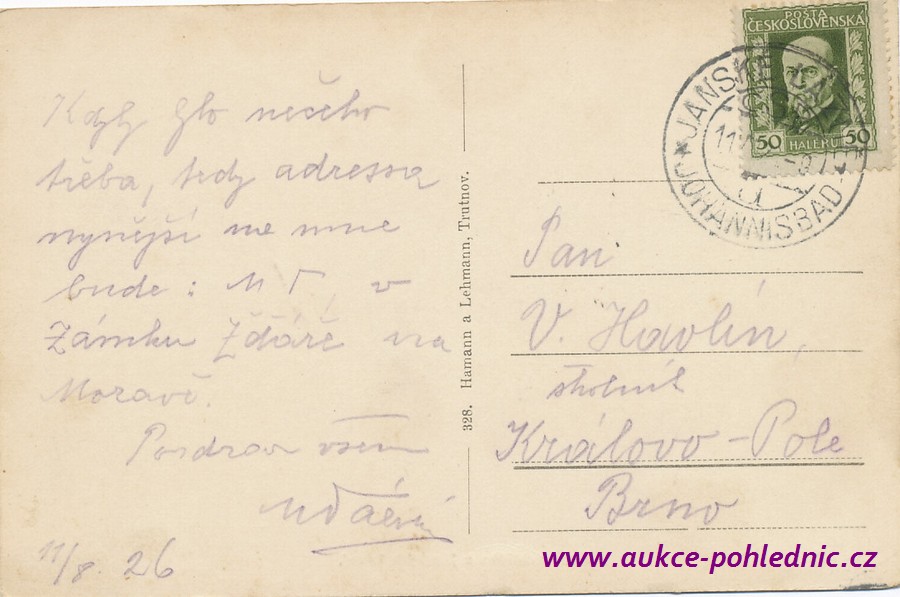 Když
něčeho
třeba, tedy adressa
nynější na mne
bude: M T, v
Zámku Žďáře na
Moravě.
Pozdrav všem
11/8. 26
328. Hamann a Lehmann, Trutnov.
POŠTA
ČESKOSLOVENSKÁ
50 HALÉŘŮ 50
JANSKÉ
JOHANNISBAD
Pan
V. Havlín,
Královo-Pole
Brno
www.aukce-pohlednic.cz